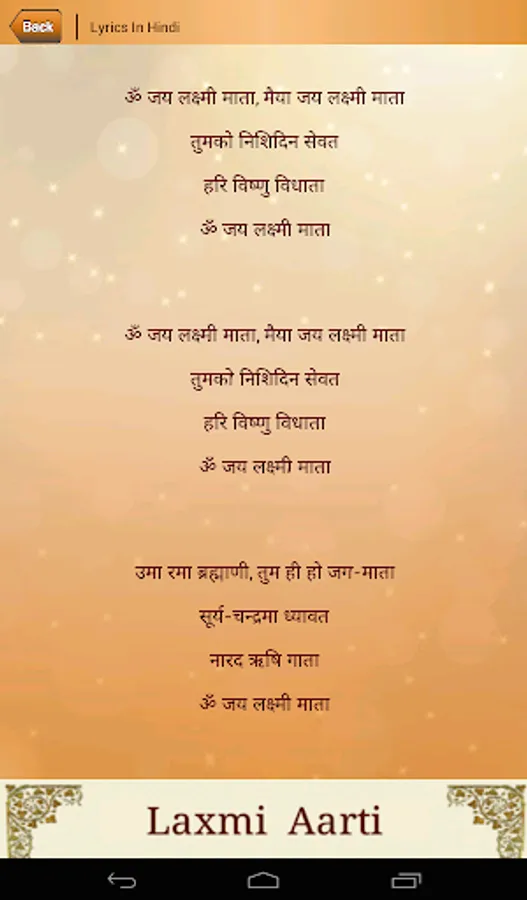 Back
Lyrics In Hindi
ॐ जय लक्ष्मी माता, मैया जय लक्ष्मी माता
तुमको निशिदिन सेवत
हरि विष्णु विधाता
ॐ जय लक्ष्मी माता
ॐ जय लक्ष्मी माता, मैया जय लक्ष्मी माता
तुमको निशिदिन सेवत
हरि विष्णु विधाता
ॐ जय लक्ष्मी माता
उमा रमा ब्रह्माणी, तुम ही हो जग-माता
सूर्य-चन्द्रमा ध्यावत
नारद ऋषि गाता
ॐ जय लक्ष्मी माता
Laxmi Aarti